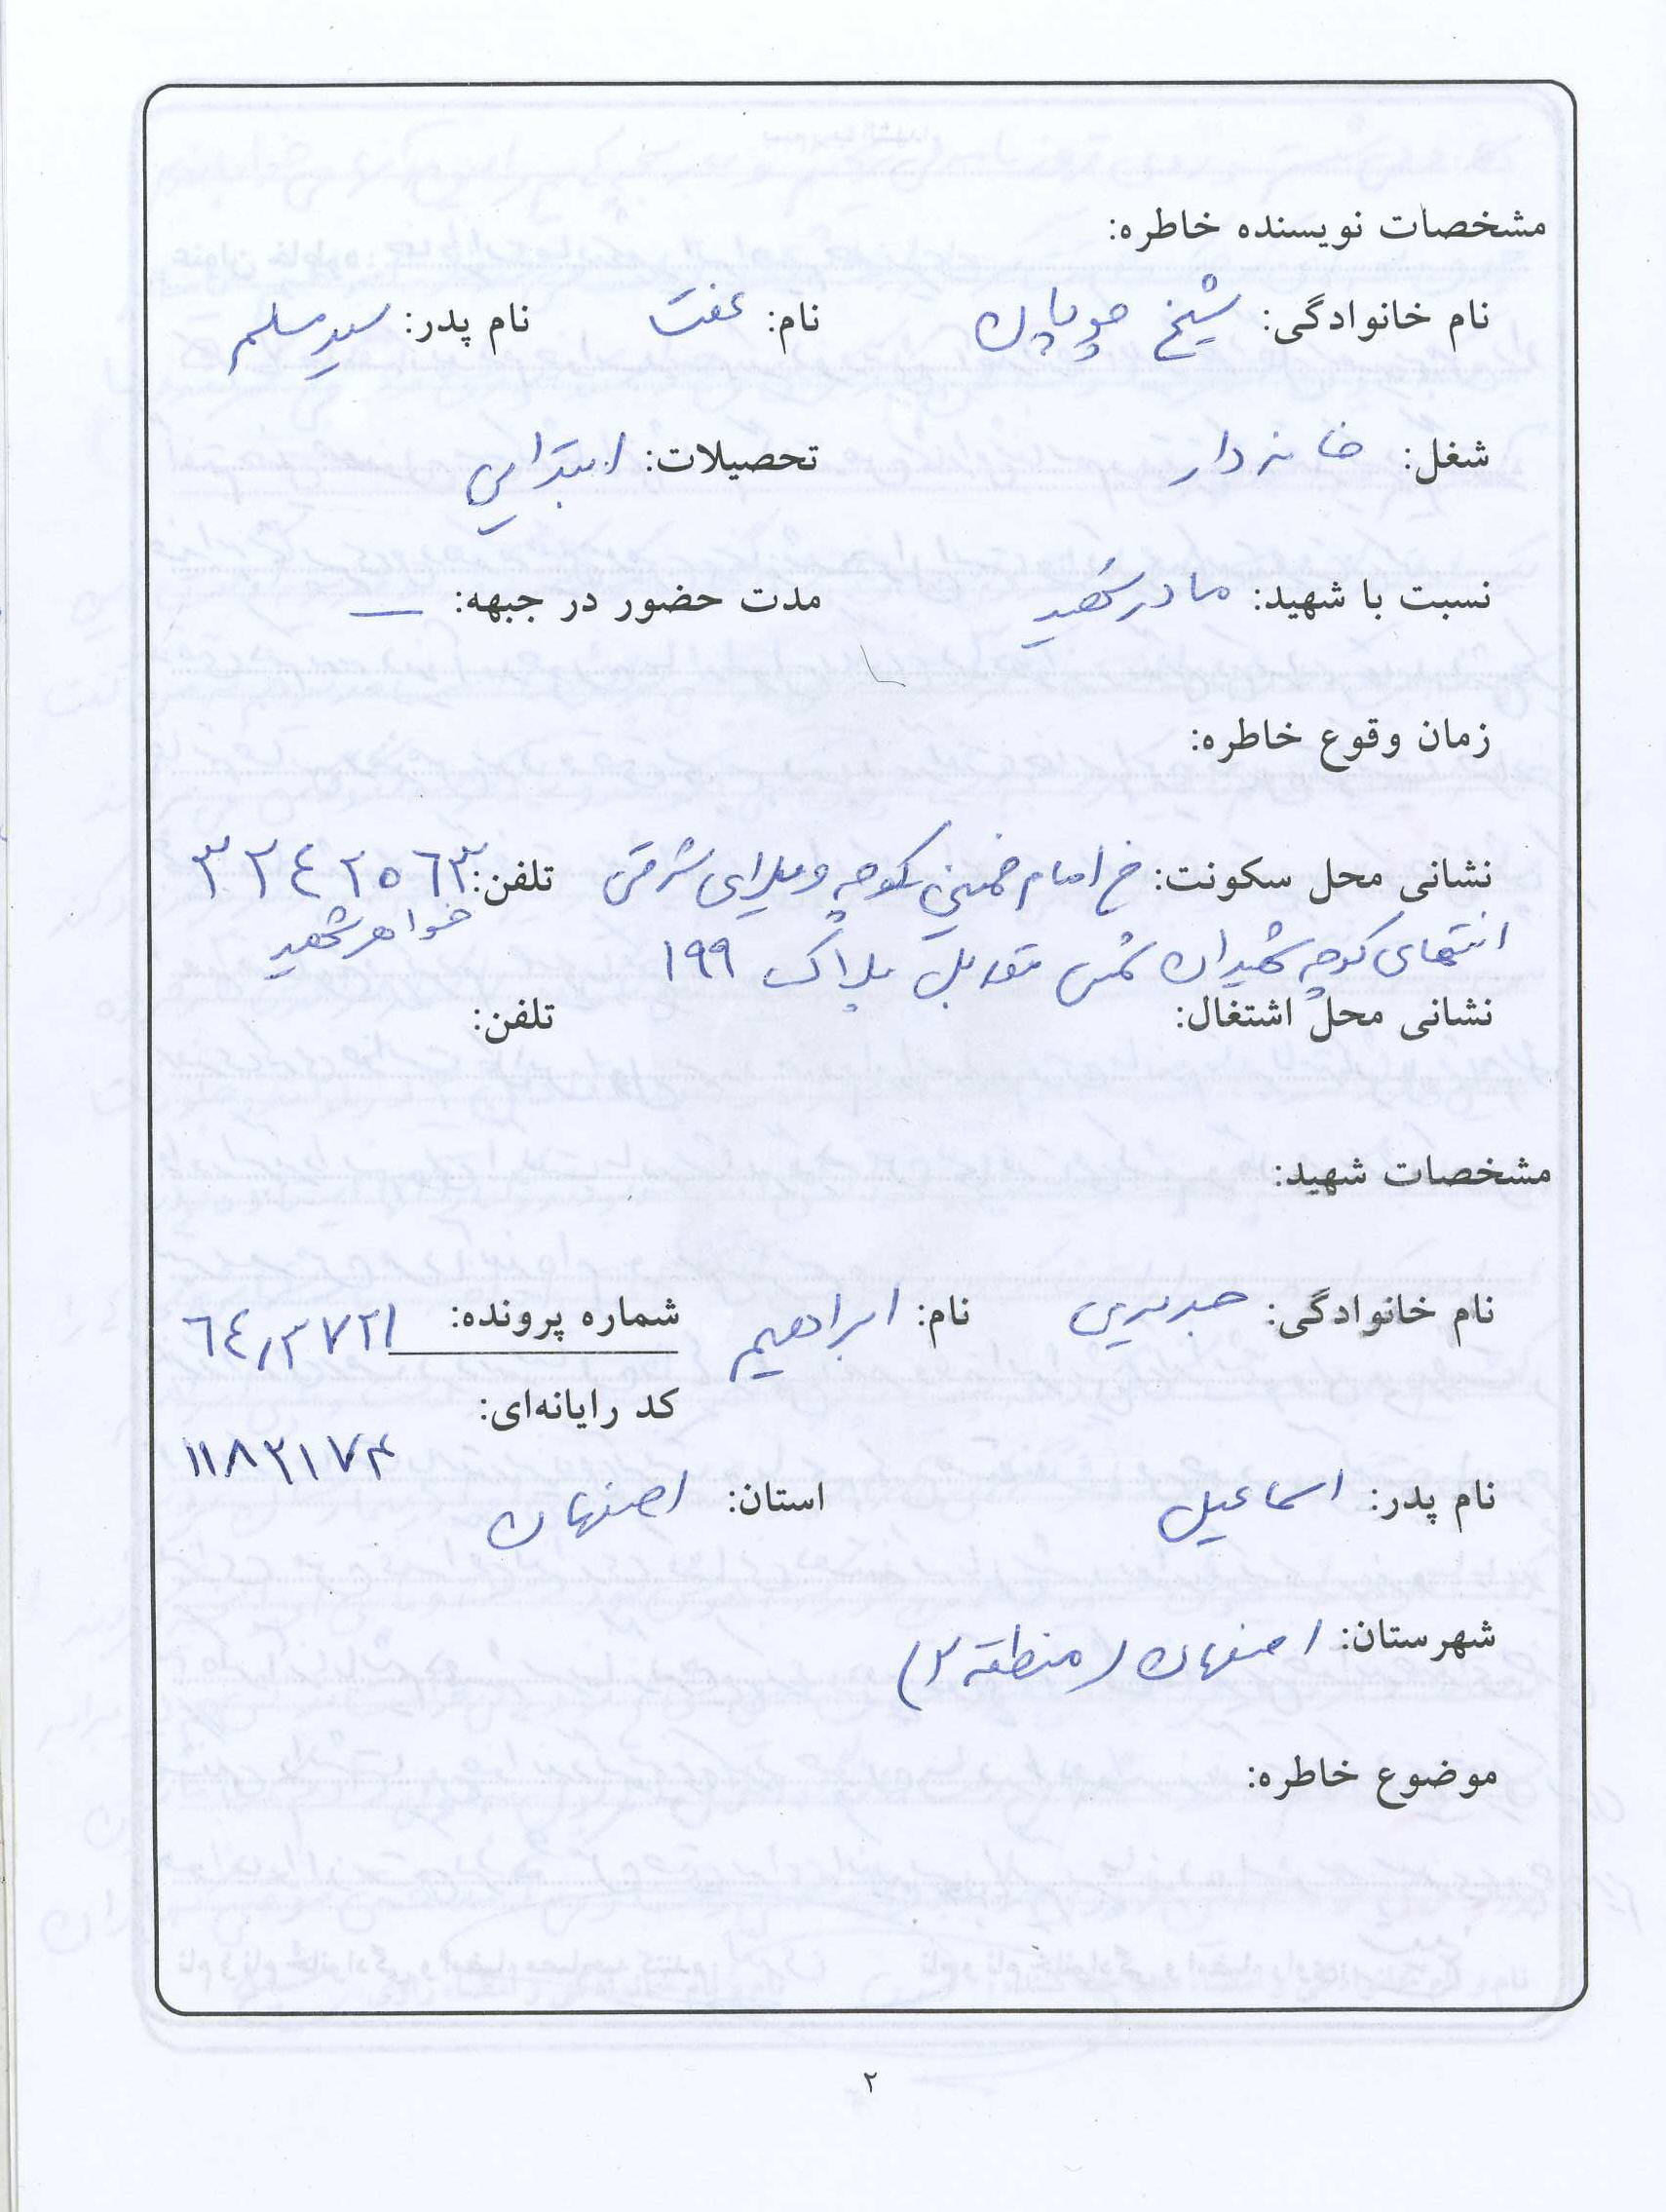 مشخصات نویسنده خاطره:
نام خانوادگی: شیخ چوپان نام: عفت نام پدر: سید مسلم
شغل: خانه دار تحصیلات: ابتدایی
نسبت با شهید: مادر شهید مدت حضور در جبهه: —
زمان وقوع خاطره:
نشانی محل سکونت: خ امام خمینی کوچه ویلای شرقی تلفن: ۳۲۴۲۵۶۳
انتهای کوچه شهیدان شمس مقابل پلاک ۱۹۹ خواهر شهید
نشانی محل اشتغال: تلفن:
مشخصات شهید:
نام خانوادگی: نام: ابراهیم شماره پرونده: ۶۴/۳۷۲۱
کد رایانه‌ای:
۱۱۸۲۱۷۴
نام پدر: اسماعیل استان: اصفهان
شهرستان: اصفهان (منطقه ۲)
موضوع خاطره:
۲